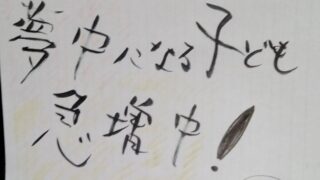 夢中になる子ども
急増中!